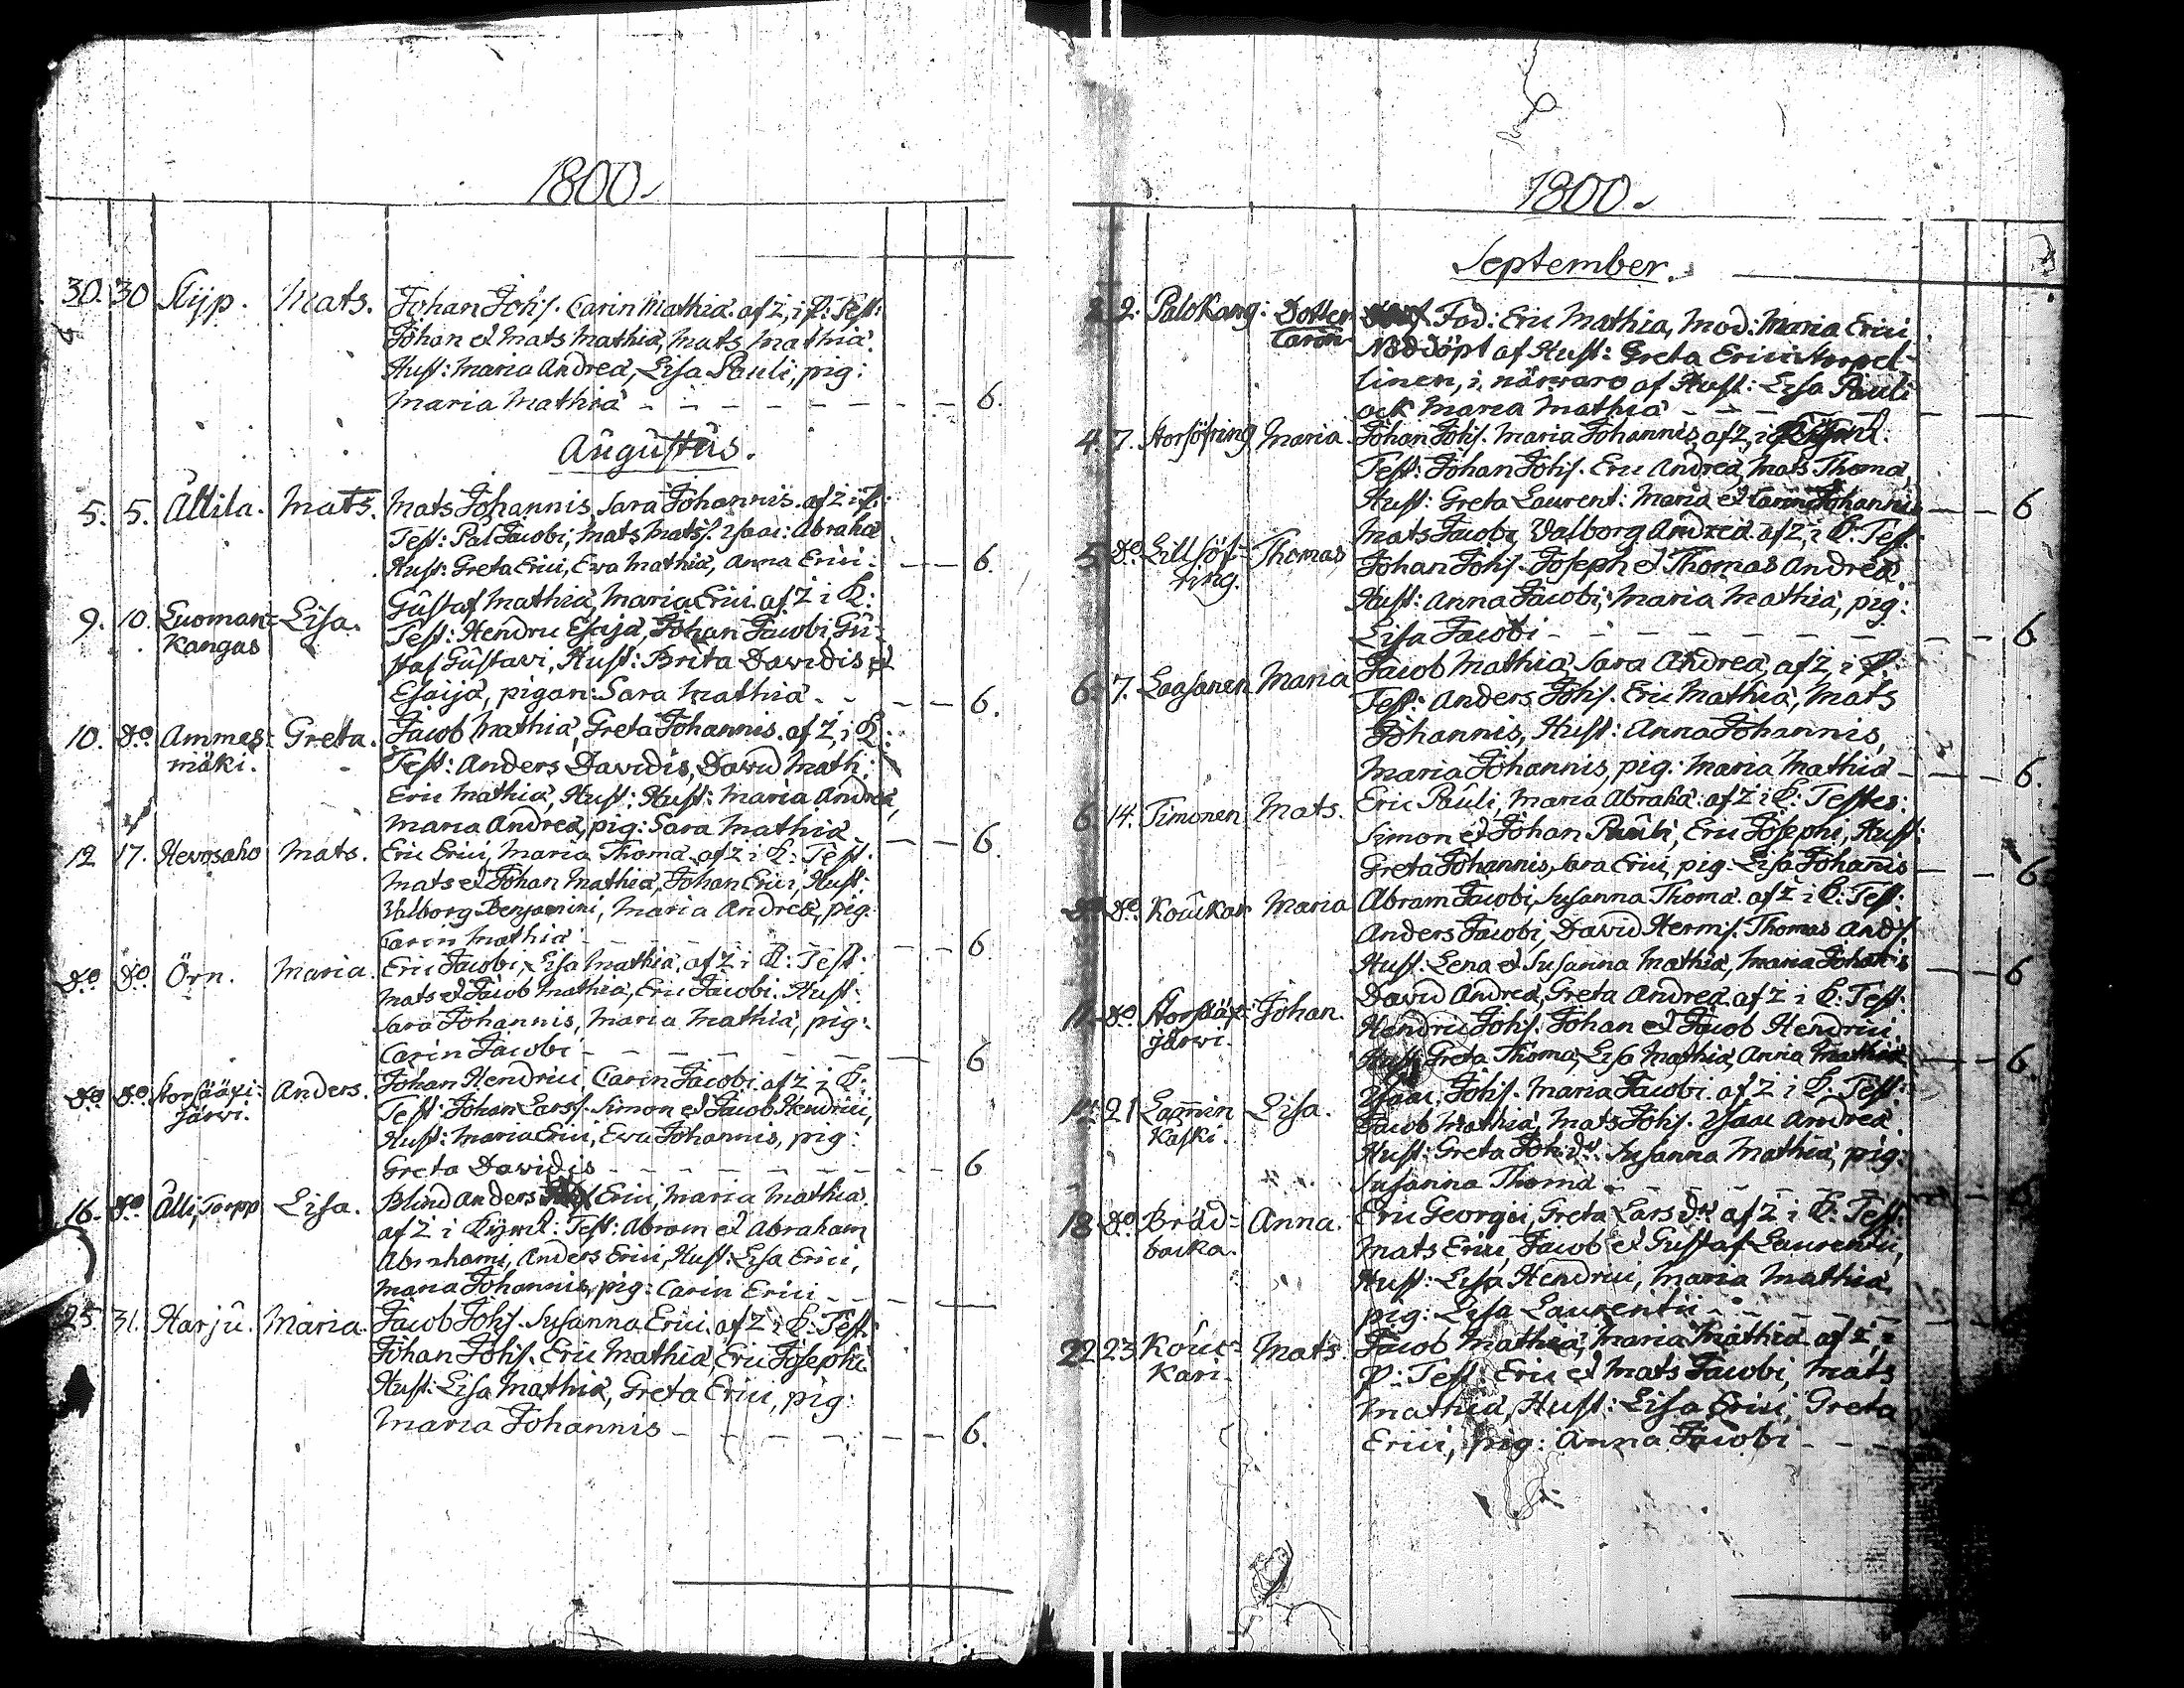 1800.
30. 30 Slip. Mats. Johan Johs. Carin Mathiæ. af Z, i P: Test:
Johan et Mats Mathiæ, Mats Mathiæ.
Hust: Maria Andreæ, Lisa Pauli, pig:
Maria Mathiæ - - - - - - - - - 6.
Augustus.
5. 5. Ållila. Mats. Mats Johannis, Sara Johannis. af Z i B:
Test: Pål Jacobi, Mats Mats s. Isaac: Abrahæ
Hust: Greta Erici, Eva Mathiæ, Anna Erici: - - - 6.
9. 10. Luoman= Lisa. Gustaf Mathiæ, Maria Erici. af Z i B:
Kangas Test: Hendric Esaijæ, Johan Jacobi, Gu=
staf Gustavi, Hust: Brita Davidis et
Esaijæ, pigan: Sara Mathiæ - - - - 6.
10. do. Ammes= Greta. Jacob Mathiæ, Greta Johannis. af Z, i B:
mäki. Test: Anders Davidis, David Math:
Eric Mathiæ, Hust: Hust: Maria Andreæ,
Maria Andreæ, pig: Sara Mathiæ. - - - 6.
12 17. Hevosaho Mats. Eric Erici, Maria Thomæ. af Z i B: Test:
Mats et Johan Mathiæ, Johan Erici, Hust:
Valborg Benjamini, Maria Andreæ, pig:
Carin Mathiæ - - - - - 6.
do. do Örn. Maria. Eric Jacobi, Lisa Mathiæ, af Z i B: Test:
Mats et Jacob Mathiæ, Eric Jacobi. Hust:
Sara Johannis, Maria Mathiæ, pig:
Carin Jacobi - - - - - - - - 6
do. do. Storsääxi= Anders. Johan Hendrici, Carin Jacobi. af Z i B:
Järvi. Test: Johan Larss. Simon et Jacob Hendrici,
Hust: Maria Erici, Eva Johannis, pig:
Greta Davidis - - - - - - - - - 6
16. do Ålli, Torpp Lisa. Blind Anders Erici, Maria Mathiæ.
af Z i Kyrnt: Test: Abram et Abraham
Abrahami, Anders Erici, Hust: Lisa Erici,
Maria Johannis, pig: Carin Erici - - -
25. 31. Harju. Maria. Jacob Johs. Susanna Erici. af Z i B: Test:
Johan Johs. Eric Mathiæ, Eric Josephi
Hust: Lisa Mathiæ, Greta Erici, pig:
Maria Johannis - - - - - - - 6.
1800.
September.
2. Palokang: Dotter Fad: Eric Mathiæ, Mod: Maria Erici
Carin Nöddöpt af Hust: Greta Erici
linen, i närvaro af Hust: Lisa Pauli
ock Maria Mathiæ - - - - -
4. 7. Storsöfring Maria Johan Johs. Maria Johannis, af Z, i
Test: Johan Johs. Eric Andreæ, Mats Thomæ,
Hust: Greta Laurent: Maria et Carin Johannis - - 6
5 do. Lillsöf= Thomas Mats Jacobi, Valborg Andreæ. af Z, i B: Test:
ring. Johan Johs. Joseph et Thomas Andreæ
Hust: Anna Jacobi, Maria Mathiæ, pig:
Lisa Jacobi - - - - - - - - - 6
6. 7. Laasanen Maria Jacob Mathiæ, Sara Andreæ, af Z, i P:
Test: Anders Johs. Eric Mathiæ, Mats
Johannis, Hust: Anna Johannis,
Maria Johannis, pig: Maria Mathiæ - - - 6.
6. 14. Timonen Mats. Eric Pauli, Maria Abrahæ: af Z i B: Testes:
Simon et Johan Pauli, Eric Josephi, Hust:
Greta Johannis, Sara Erici, pig: Lisa Johanis - - 6
do. do. Koukar Maria Abram Jacobi, Susanna Thomæ. af Z i B: Test:
Anders Jacobi, David Herms. Thomas Ands.
Hust: Lena et Susanna Mathiæ, Maria Johanis - - 6
11. do. Storsääx= Johan. David Andreæ, Greta Andreæ. af Z i B: Test:
järvi. Hendric Johs. Johan et Jacob Hendrici
Hust: Greta Thomæ, Lisa Mathiæ, Anna Mathiæ - - 6.
14. 21 Lamin Lisa. Isaac Johs. Maria Jacobi. af Z i B: Test:
Kaski. Jacob Mathiæ, Mats Johs. Isaac Andreæ.
Hust: Greta Joh. dr. Susanna Mathiæ, pig:
Susanna Thomæ. - - - - - -
18 do Bräd= Anna. Eric Georgii, Greta Lars dr. af Z i B: Test:
backa. Mats Erici, Jacob et Gustaf Laurentii,
Hust: Lisa Hendrici, Maria Mathiæ,
pig: Lisa Laurentii - - - - -
22 23 Kouc= Mats Jacob Mathiæ, Maria Mathiæ af Z, i
Kari. P: Test: Eric et Mats Jacobi, Mats
Mathiæ, Hust: Lisa Erici, Greta
Erici, pig: Anna Jacobi - - -